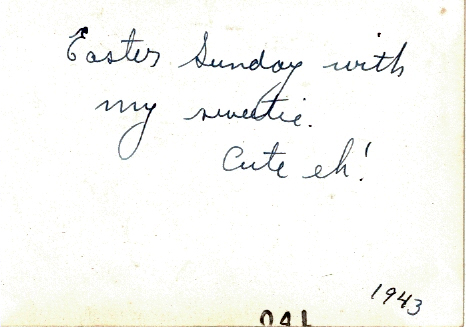 Easter Sunday with
my sweetie.
Cute eh!
1943
041